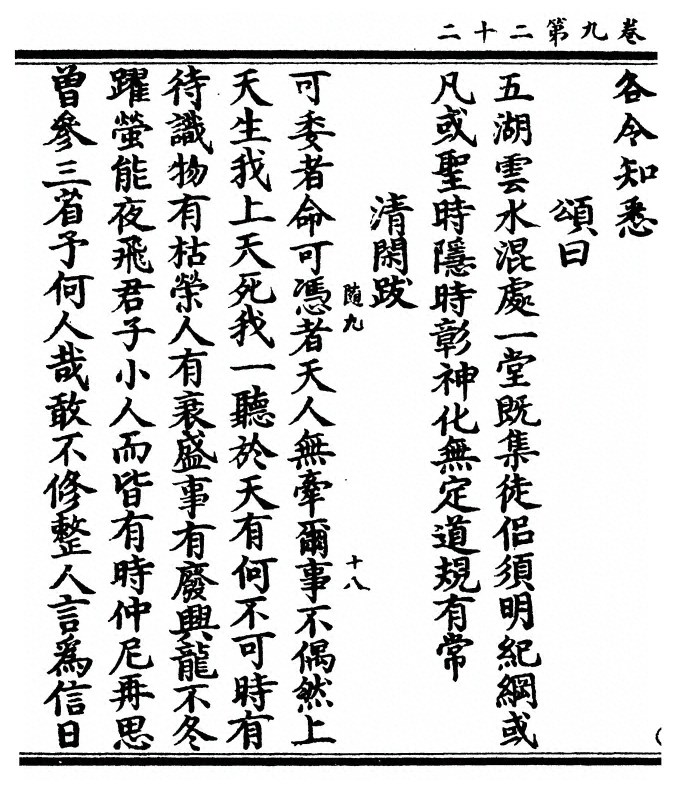 卷九第二十二
各令知悉
頌曰
五湖雲水混處一堂既集徒侶須明紀綱或
凡或聖時隱時彰神化無定道規有常
清閑跋
随九
十八
可委者命可憑者天人無牽爾事不偶然上
天生我上天死我一聽於天有何不可時有
待識物有枯榮人有衰盛事有廢興龍不冬
躍螢能夜飛君子小人而皆有時仲尼再思
曾參三省予何人哉敢不修整人言為信日